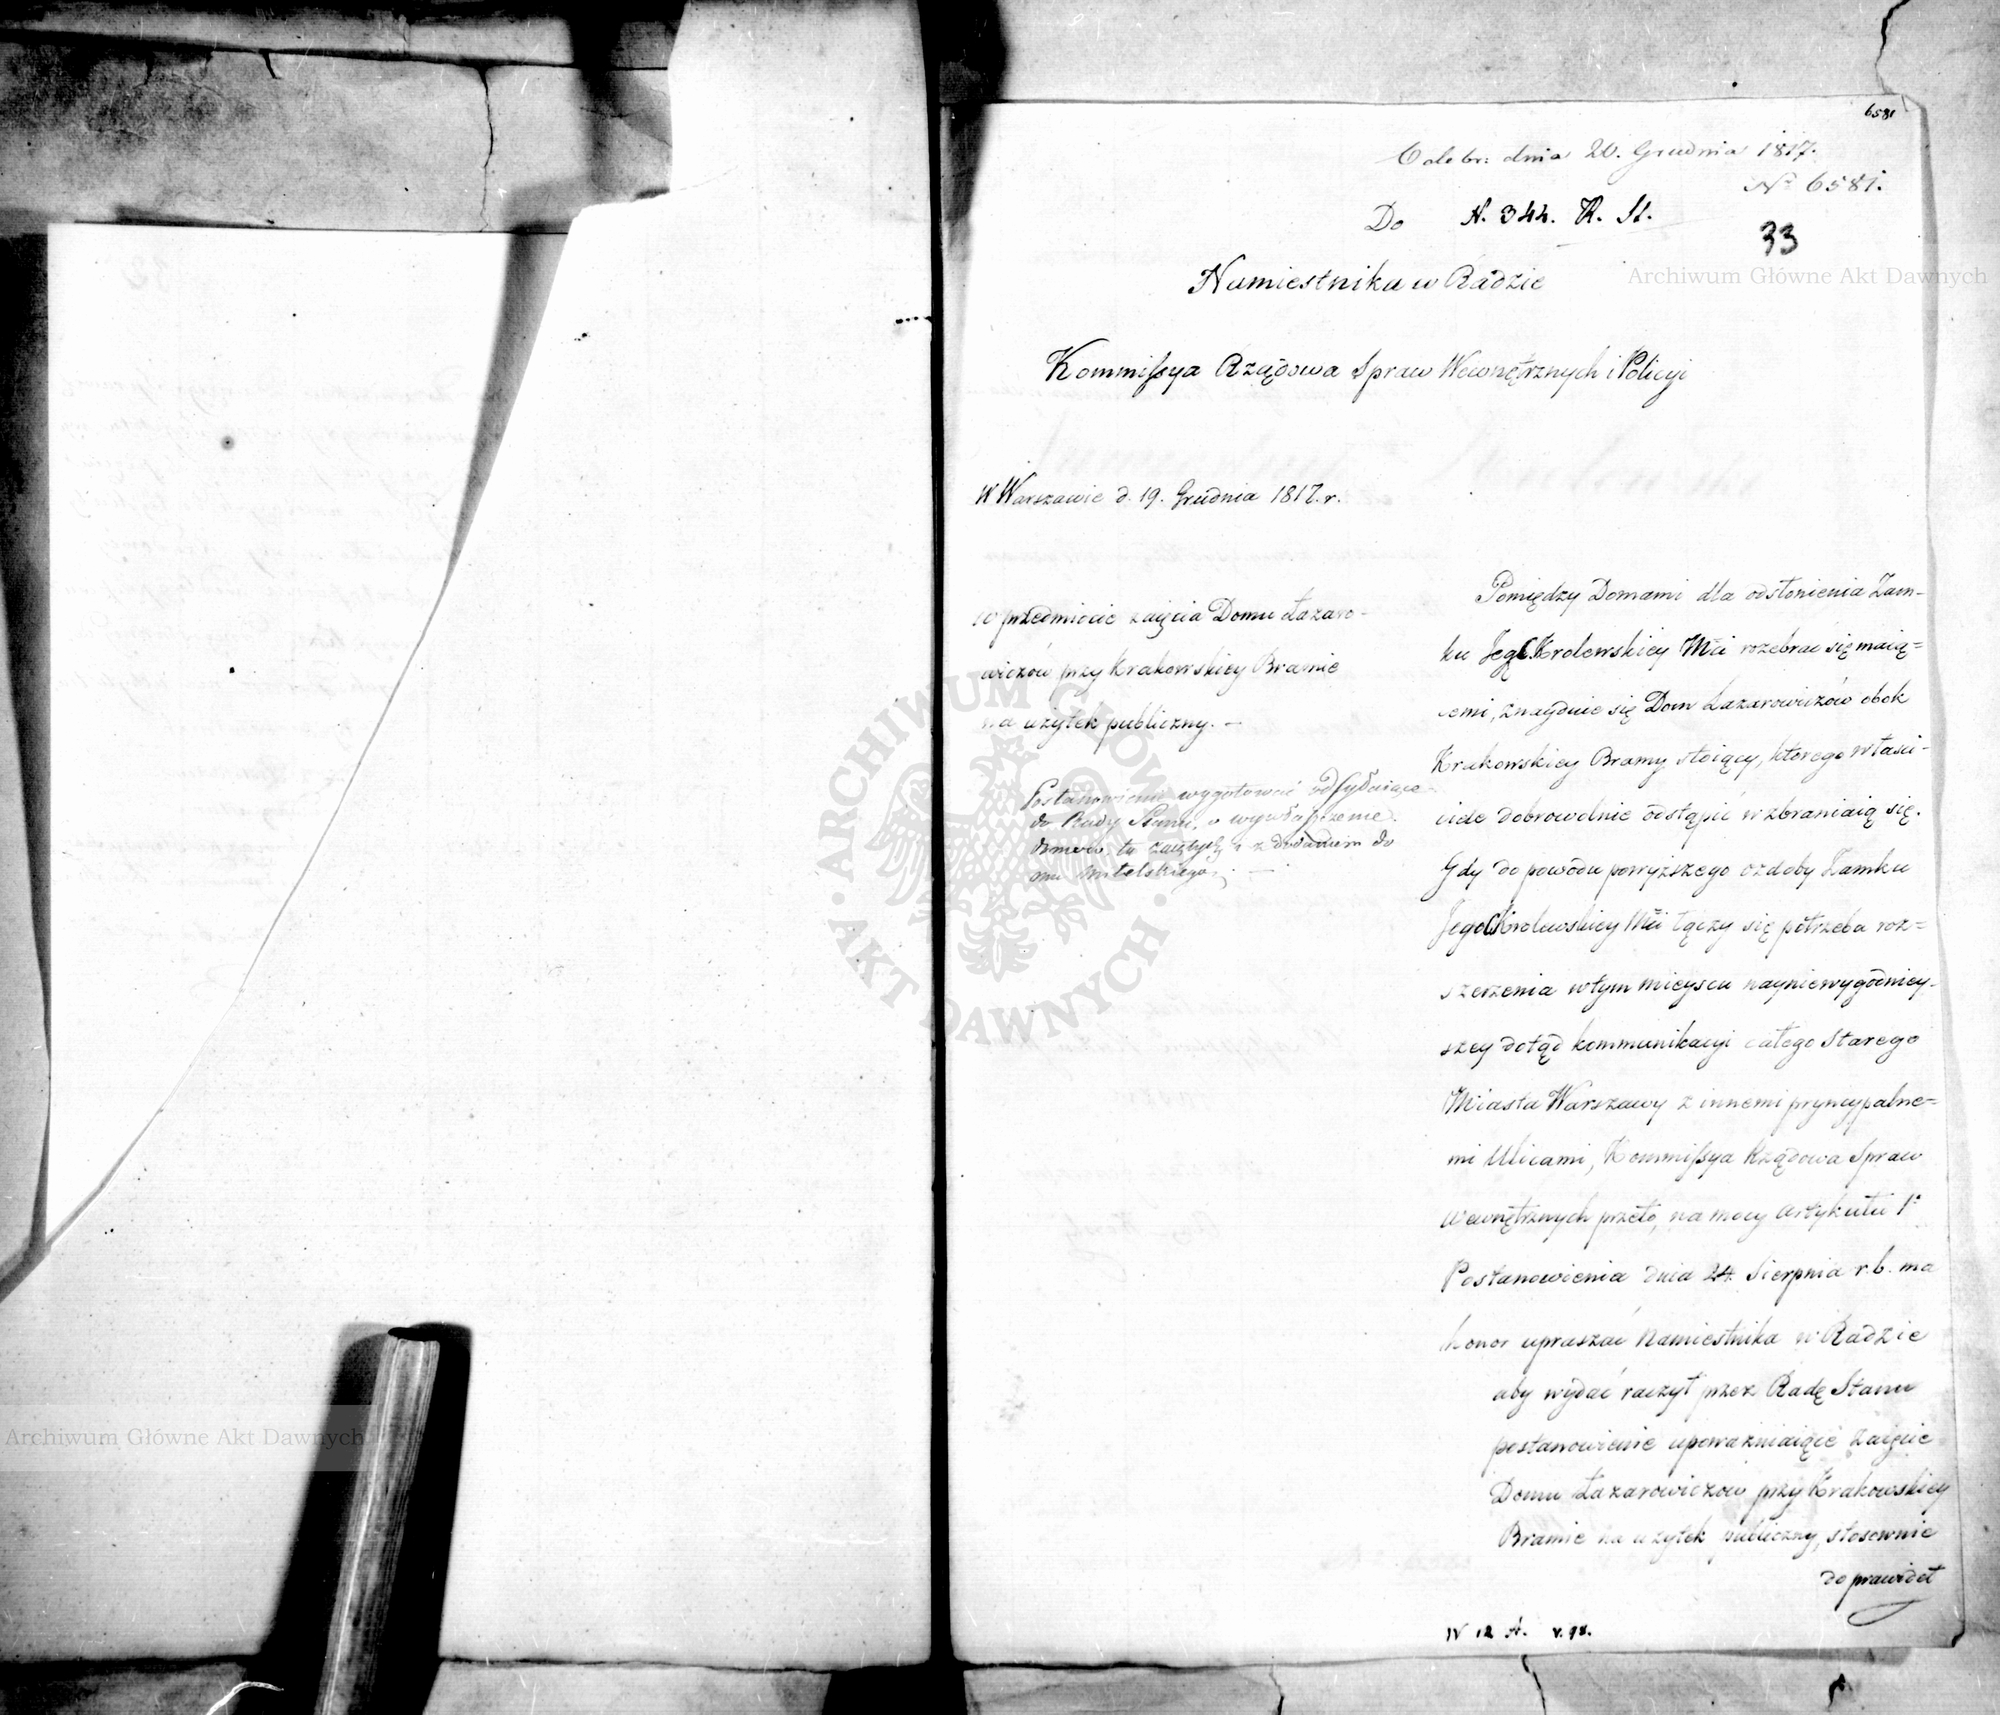 6581
Odebr: dnia 20. Grudnia 1817.
No 6581.
Do N. 344. R. St.
33
Archiwum Główne Akt Dawnych
Namiestnika w Radzie
Kommissya Rządowa Spraw Wewnętrznych i Policyi
W Warszawie d. 19. Grudnia 1817. r.
w przedmiocie zaięcia Domu Łazaro-
wiczów przy Krakowskiey Bramie
na użytek publiczny. —
Postanowienie wygotować odsyłaiące
do Rady Stanu, o wywłaszczenie
domów, tu zaiętych z dodaniem do
mu Mitelskiego. —
Pomiędzy Domami dla odsłonienia Zam-
ku Jego C. Krolewskiey Mci rozebrać się maią=
cemi, znayduie się Dom Łazarowiczów obok
Krakowskiey Bramy stoiący, ktorego właści-
ciele dobrowolnie odstąpić wzbraniaią się.
Gdy do powodu powyższego ozdoby Zamku
Jego C Krolewskiey Mci łączy się potrzeba roz=
szerzenia w tym mieyscu nayniewygodniey-
szey dotąd kommunikacyi całego Starego
Miasta Warszawy z innemi pryncypalne=
mi Ulicami, Kommissya Rządowa Spraw
Wewnętrznych przeto, na mocy Artykułu 1o
Postanowienia dnia 24. Sierpnia r. b. ma
honor upraszać Namiestnika w Radzie
aby wydać raczył przez Radę Stanu
postanowienie upoważniaiące zaięcie
Domu Łazarowiczow przy Krakowskiey
Bramie na użytek publiczny, stosownie
do prawideł
IV 12 A. v. 98.
ARCHIWUM GŁÓWNE AKT DAWNYCH
Archiwum Główne Akt Dawnych